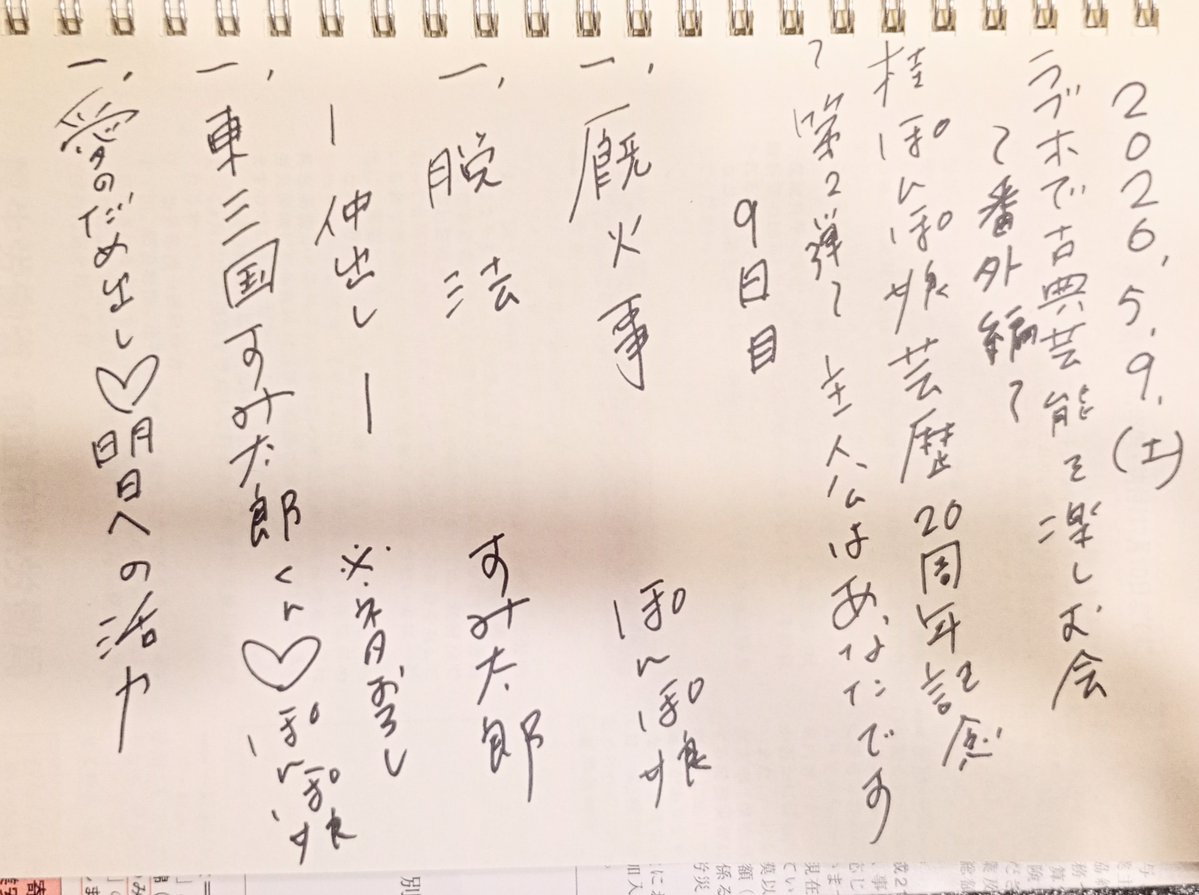 2026.5.9.(土)
ラブホで古典芸能を楽しむ会
〜番外編〜
桂ぽんぽ娘芸歴20周年記念
〜第2弾〜主人公はあなたです
9日目
一、厩火事 ぽんぽ娘
一、脱法 すみ太郎
―仲出し―
※ネタおろし
一、東三国すみ太郎くん♡ぽんぽ娘
一、愛のだめ出し♡明日への活力